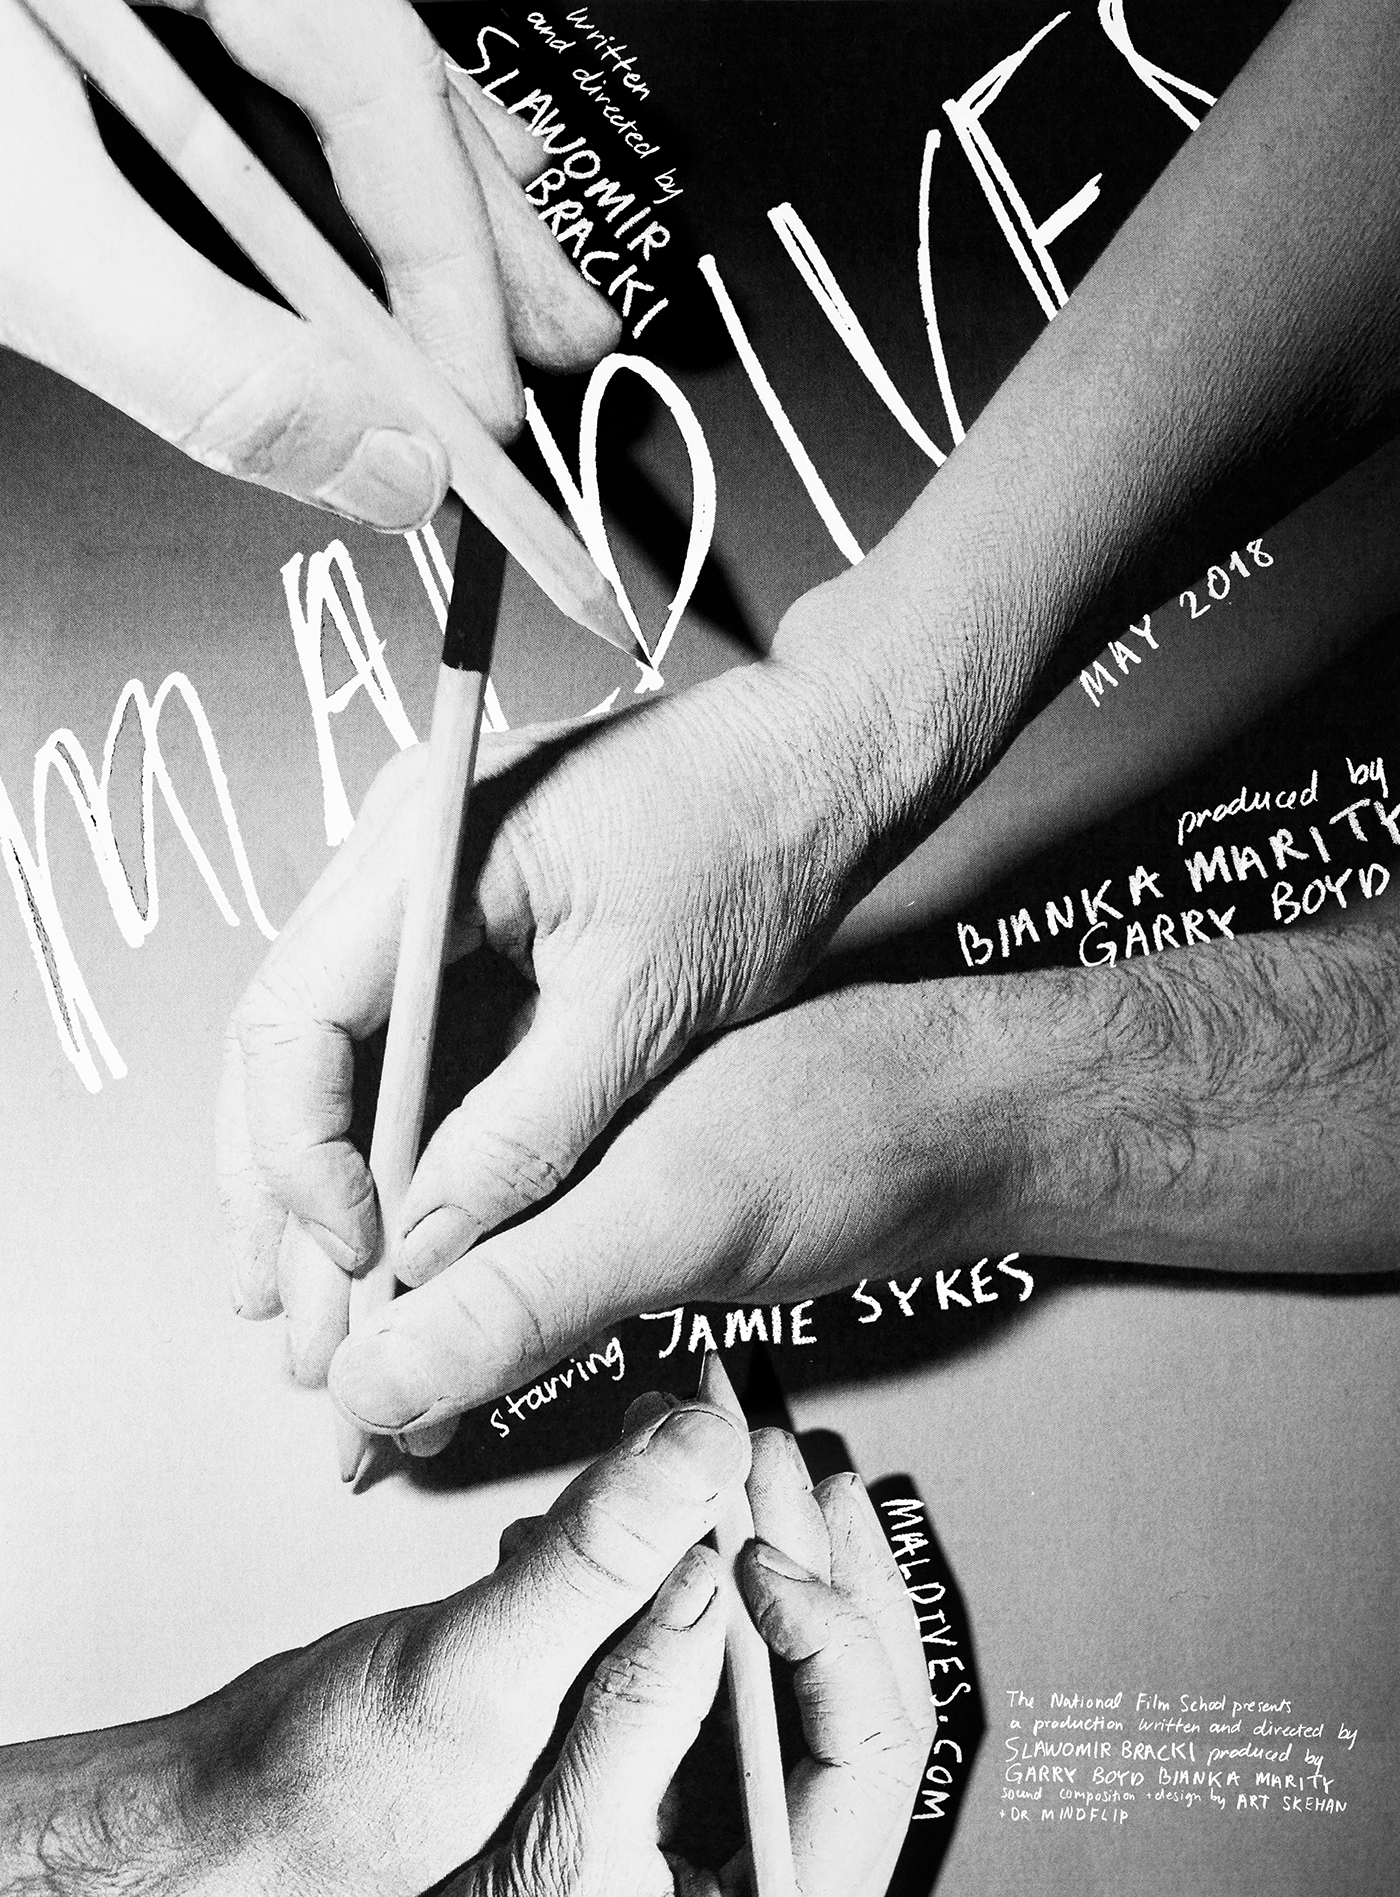 written
and directed by
SLAWOMIR
BRACKI
MALDIVES
MAY 2018
produced by
BIANKA MARITY
GARRY BOYD
starring JAMIE SYKES
MALDIVES.COM
The National Film School presents
a production written and directed by
SLAWOMIR BRACKI produced by
GARRY BOYD BIANKA MARITY
sound composition + design by ART SKEHAN
+ DR MINDFLIP